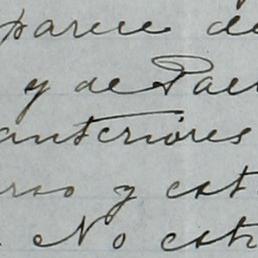 parece de
y de Pac
anteriores
rso y est
. No está